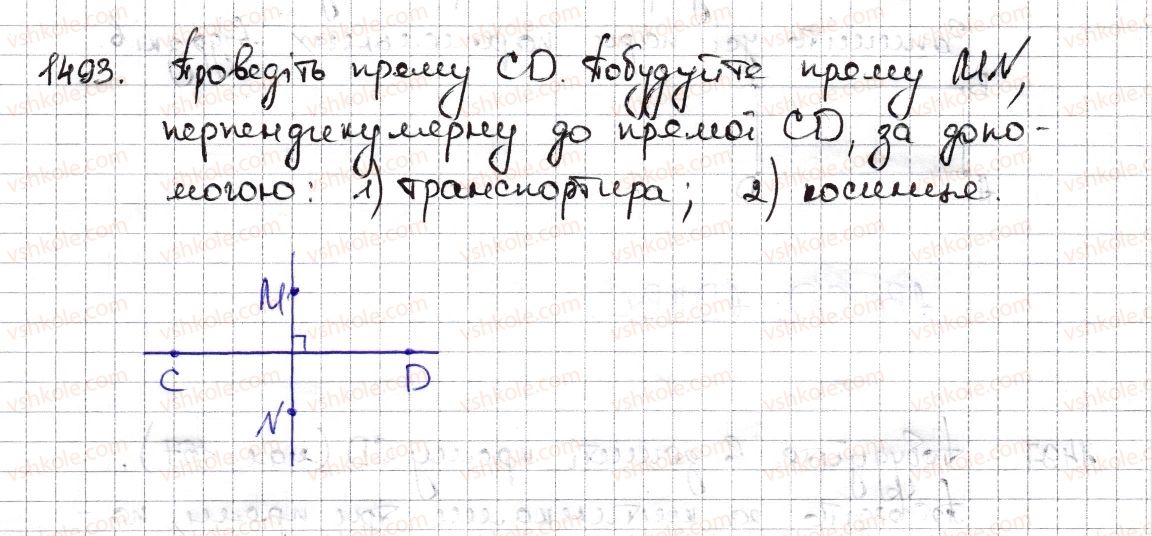 1493. Проведіть пряму CD. Побудуйте пряму MN,
перпендикулярну до прямої CD, за допо-
могою: 1) транспортира; 2) косинця.
M
C
D
N